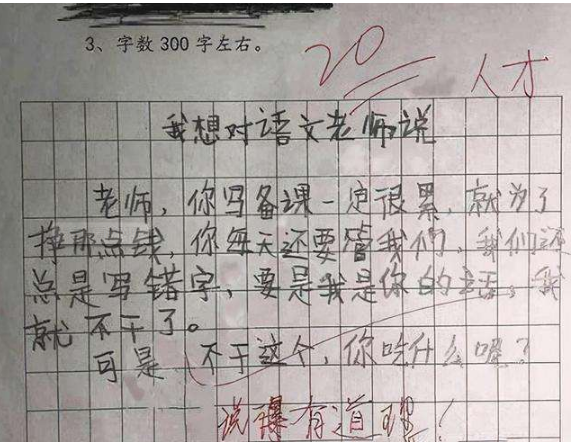 3、字数 300 字左右。
20
人才
我想对语文老师说
老师，你写备课一定很累，就为了
挣那点钱，你每天还要管我们，我们还
总是写错字，要是我是你的话，我
就不干了。
可是 不干这个，你吃什么呢？
说得有道理！